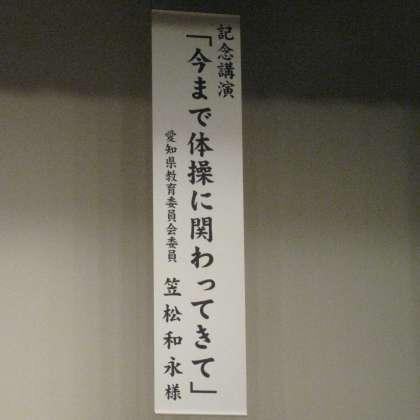 記念講演
「今まで体操に関わってきて」
愛知県教育委員会委員 笠松和永様